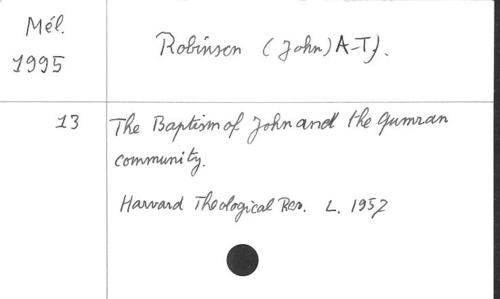 Mél.
1995
Robinson (John) A-T).
13
The Baptism of John and the Qumran
community.
Harvard Theological Rev. L. 1957